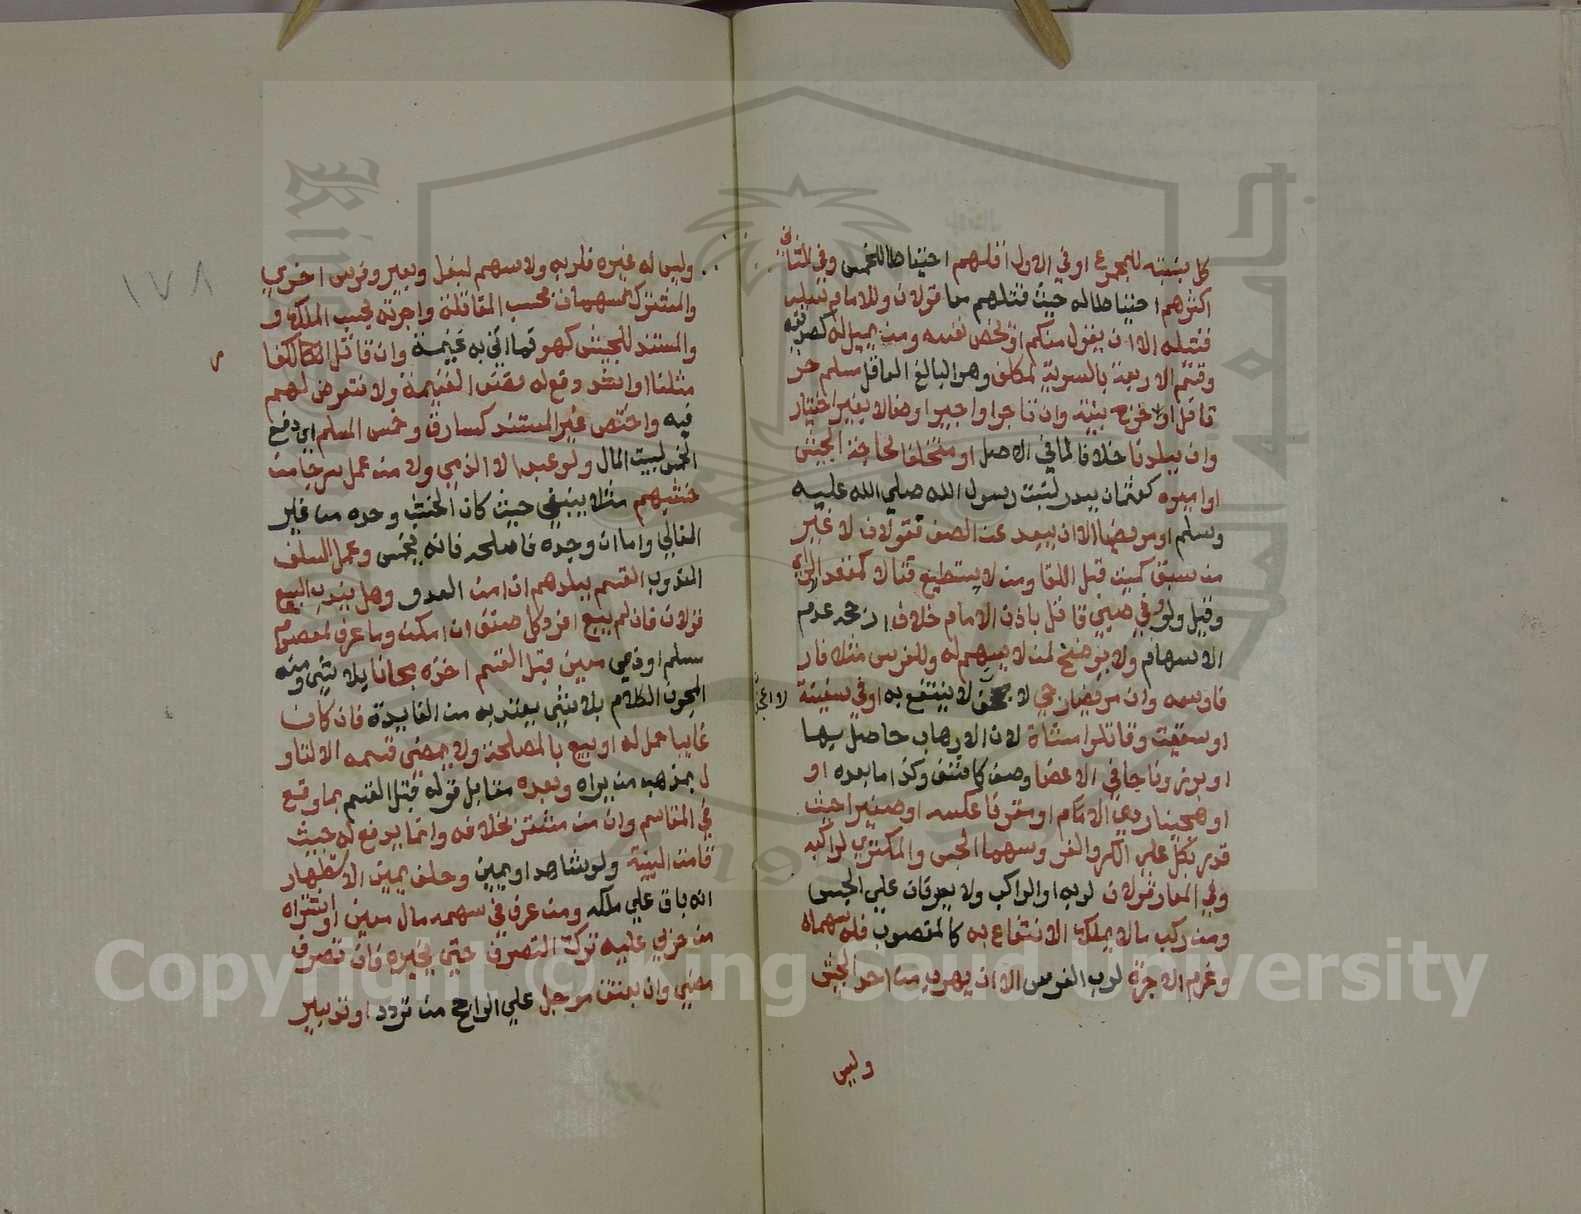 كل بنسبته للمجموع او في الاول اقلهم احتياطا للخمس وفي الثاني
اكثرهم احتياطا له حيث قتلهم معا قولان وللامام
قتيله الا ان يقول منكم او يخص نفسه ومن بميل له كصديقه
وقسم الاربعة بالسوية لمكلف وهو البالغ العاقل مسلم حر
قاتل او خرج بنيته وان تاجرا واجيرا وضالا بغير اختيار
وان ببلدنا خلافا لما في الاصل او متخلفا لحاجة الجيش
او اميره كعثمان ببدر لبنت رسول الله صلي الله عليه
وسلم او مريضا الا ان يبعد عن الصف فقولان لا غير
من سبق كميت قبل اللقا ومن لا يستطيع قتالا كمقعد الا لراي
وقيل ولو وفي صبي قاتل باذن الامام خلاف ارجحه عدم
الاسهام ولا يرضخ لمن لا يسهم له وللفرس مثلا فار
فارسه وان مريضا رجي لا لا ينتفع به او في سفينة
لا اعجف
او سبقت وقاتلوا مشاة لان الارهاب حاصل بها
او برذونا جافي الاعضا وصف كاشف وكذا ما بعده او
او هجينا ردي الام او مقرفا عكسه او صغيرا حيث
قدر بكل علي الكر والفر وسهما الحبس والمكتري لراكبه
وفي المعار قولان لربه او الراكب ولا يعرفان علي الحبس
ومن ركب مالا يملك الانتفاع به كالمغصوب فله سهماه
وغرم الاجرة لرب الفرس الا ان يهرب من احد الجيش
وليس
وليس له غيره فلربه ولا سهم لبغل وبعير وفرس اخري
والمشترك سهماه بحسب المقاتلة واجرته بحسب الملك و
والمستند للجيش كهو فما اتي به غنيمة وان قاتل الكفا
مثلنا او اشد وقع له بعض الغنيمة ولا نتعرض لهم
فيه واختص غير المستند كسارق وخمس المسلم اي دفع
الخمس لبيت المال ولو عبدا لا الذمي ولا من عمل سرجا من
خشبهم مثلا ينبغي حيث كان الخشب وحده من غير
الغالي واما ان وجده فاصلحه فانه يخمس وعمل السلف
المندوب القسم ببلدهم ان امن العدو وهل يندب البيع
قولان فان لم يبع افرد كل صنف ان امكن وما عرف لمعصوم
مسلم او ذمي معين قبل القسم اخذه مجانا بلا شيء ومنه
المجون الكلام بلا شيء يعتد به من الفايدة فان كان
غايبا حمل له او بيع بالمصلحة ولا يمضي قسمه الا لتاو
ل بمذهب من يراه وبعده مقابل قوله قبل القسم بما وقع
في المقاسم وان من مشتر بخلافه وانما يدفع له حيث
قامت البينة ولو بشاهد او يمين وحلف يمين الاستظهار
انه باق علي ملكه ومن عرف في سهمه مال معين او اشتراه
من حربي عليه ترك التصرف حتي يخيره فان تصرف
مضي وان بعتق موجل علي الراجح من تردد او تدبير
١٧٨